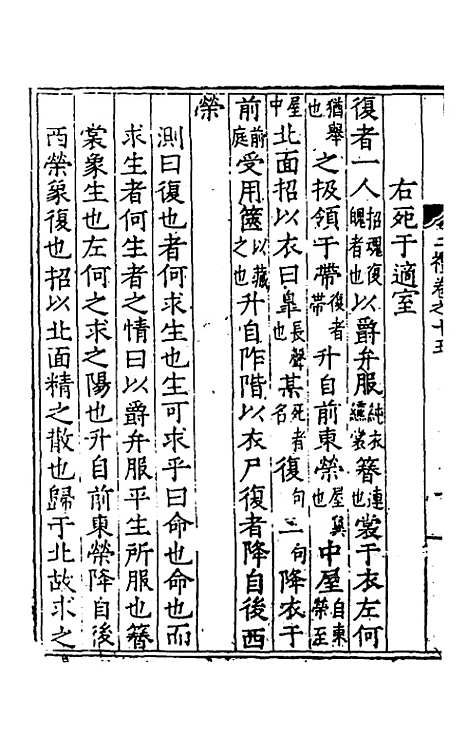 二禮卷之十五
右死于適室
復者一人招魂復魄者也以爵弁服純衣纁裳簪連也裳于衣左何
猶舉也之扱領于帶復者帶升自前東榮屋翼也中屋自東榮至
屋中北面招以衣曰臯長聲也某死者名復句三句降衣于
前前庭受用篋以藏之也升自阼階以衣尸復者降自後西
榮
測曰復也者何求生也生可求乎曰命也命也而
求生者何生者之情曰以爵弁服平生所服也簪
裳象生也左何之求之陽也升自前東榮降自後
西榮象復也招以北面精之散也歸于北故求之